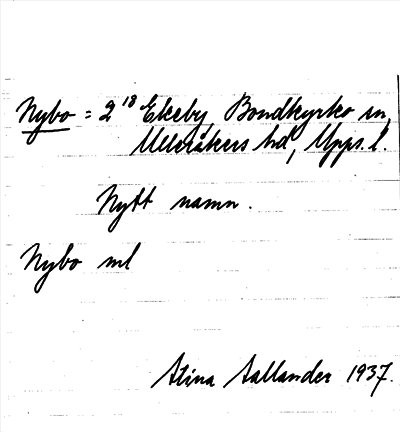 Nybo = 2¹⁸ Ekeby Bondkyrko sn,
Ulleråkers hd, Upps. l.
Nytt namn.
Nybo ml
Stina Sallander 1937.